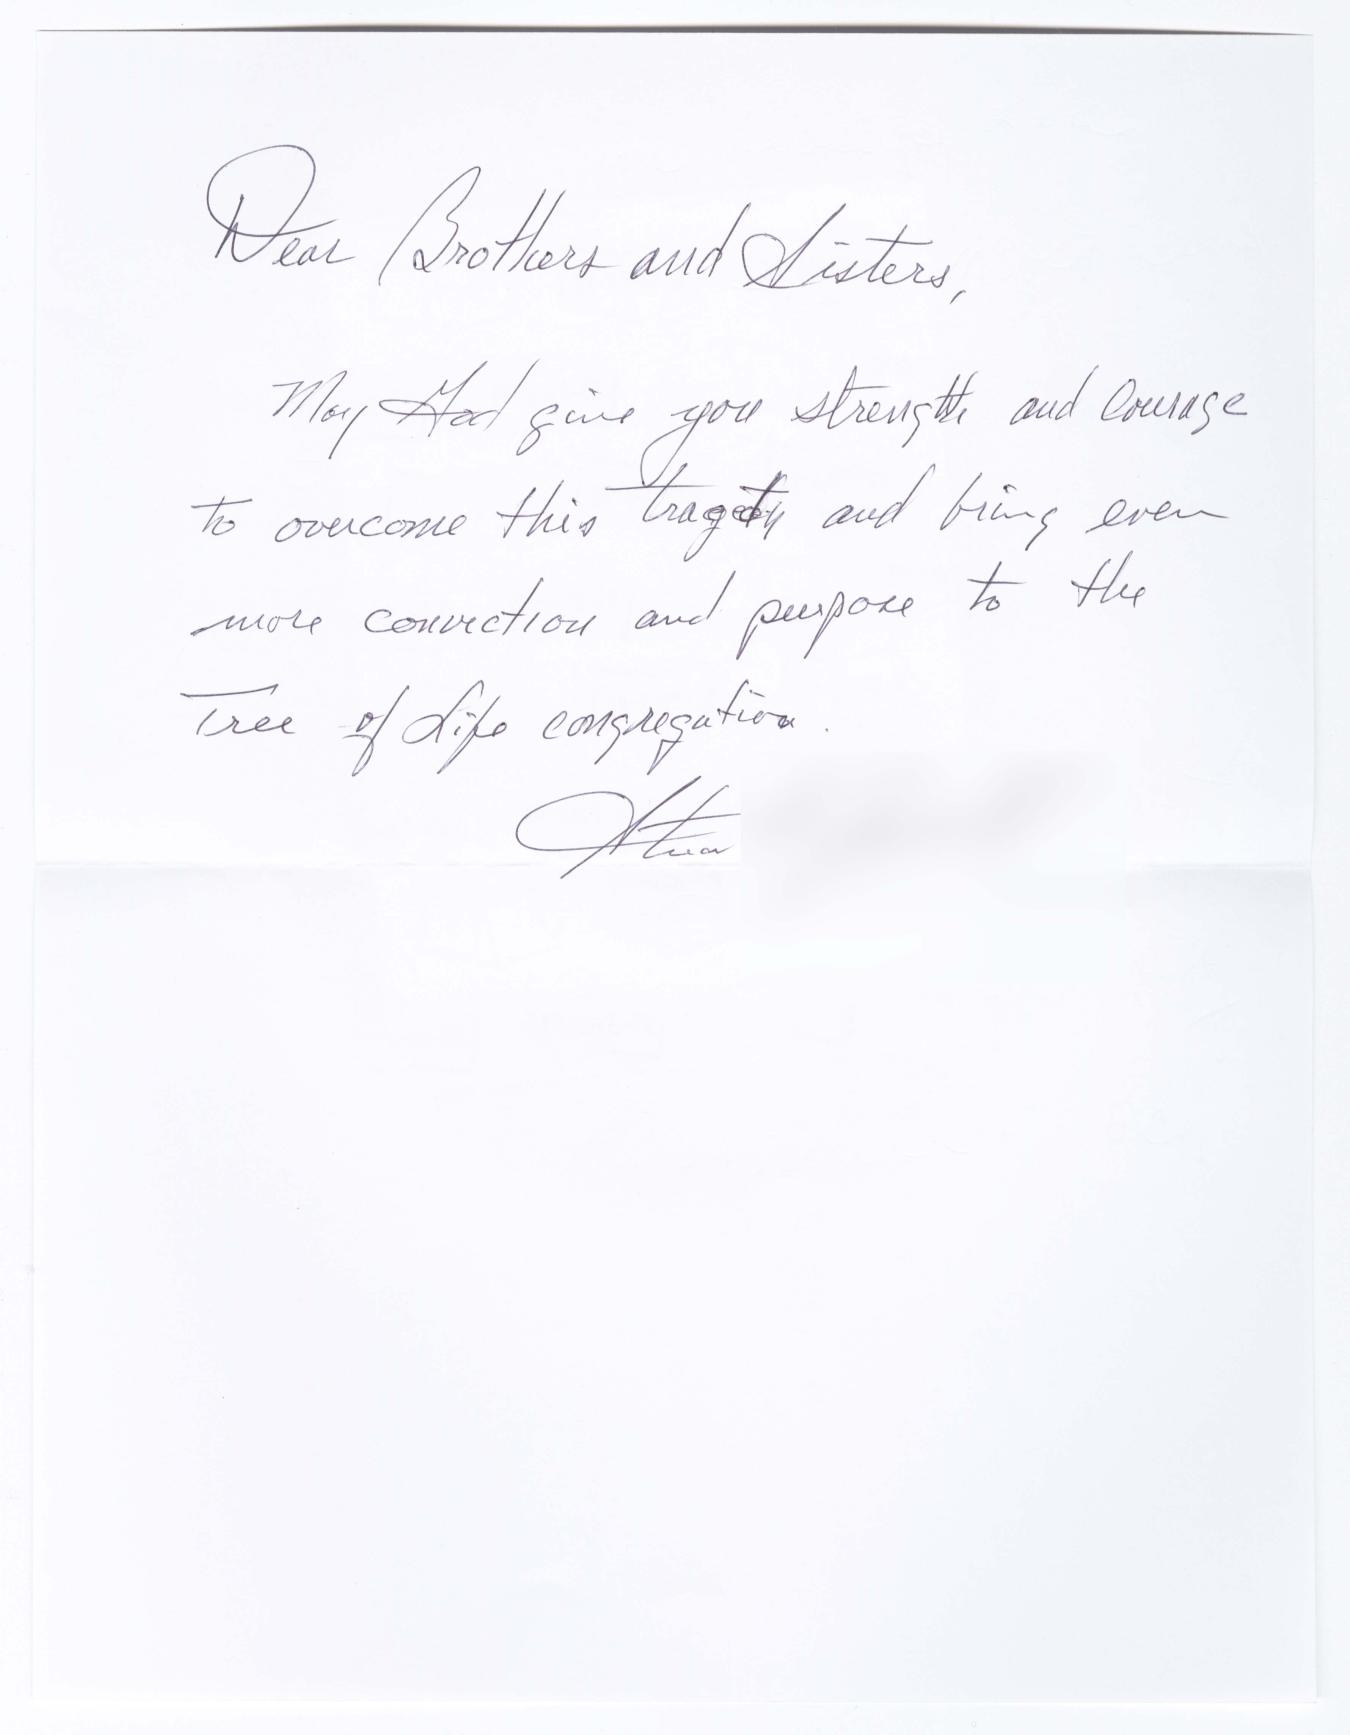 Dear Brothers and Sisters,
May God give you strength and courage
to overcome this tragedy and bring even
more conviction and purpose to the
Tree of Life congregation.